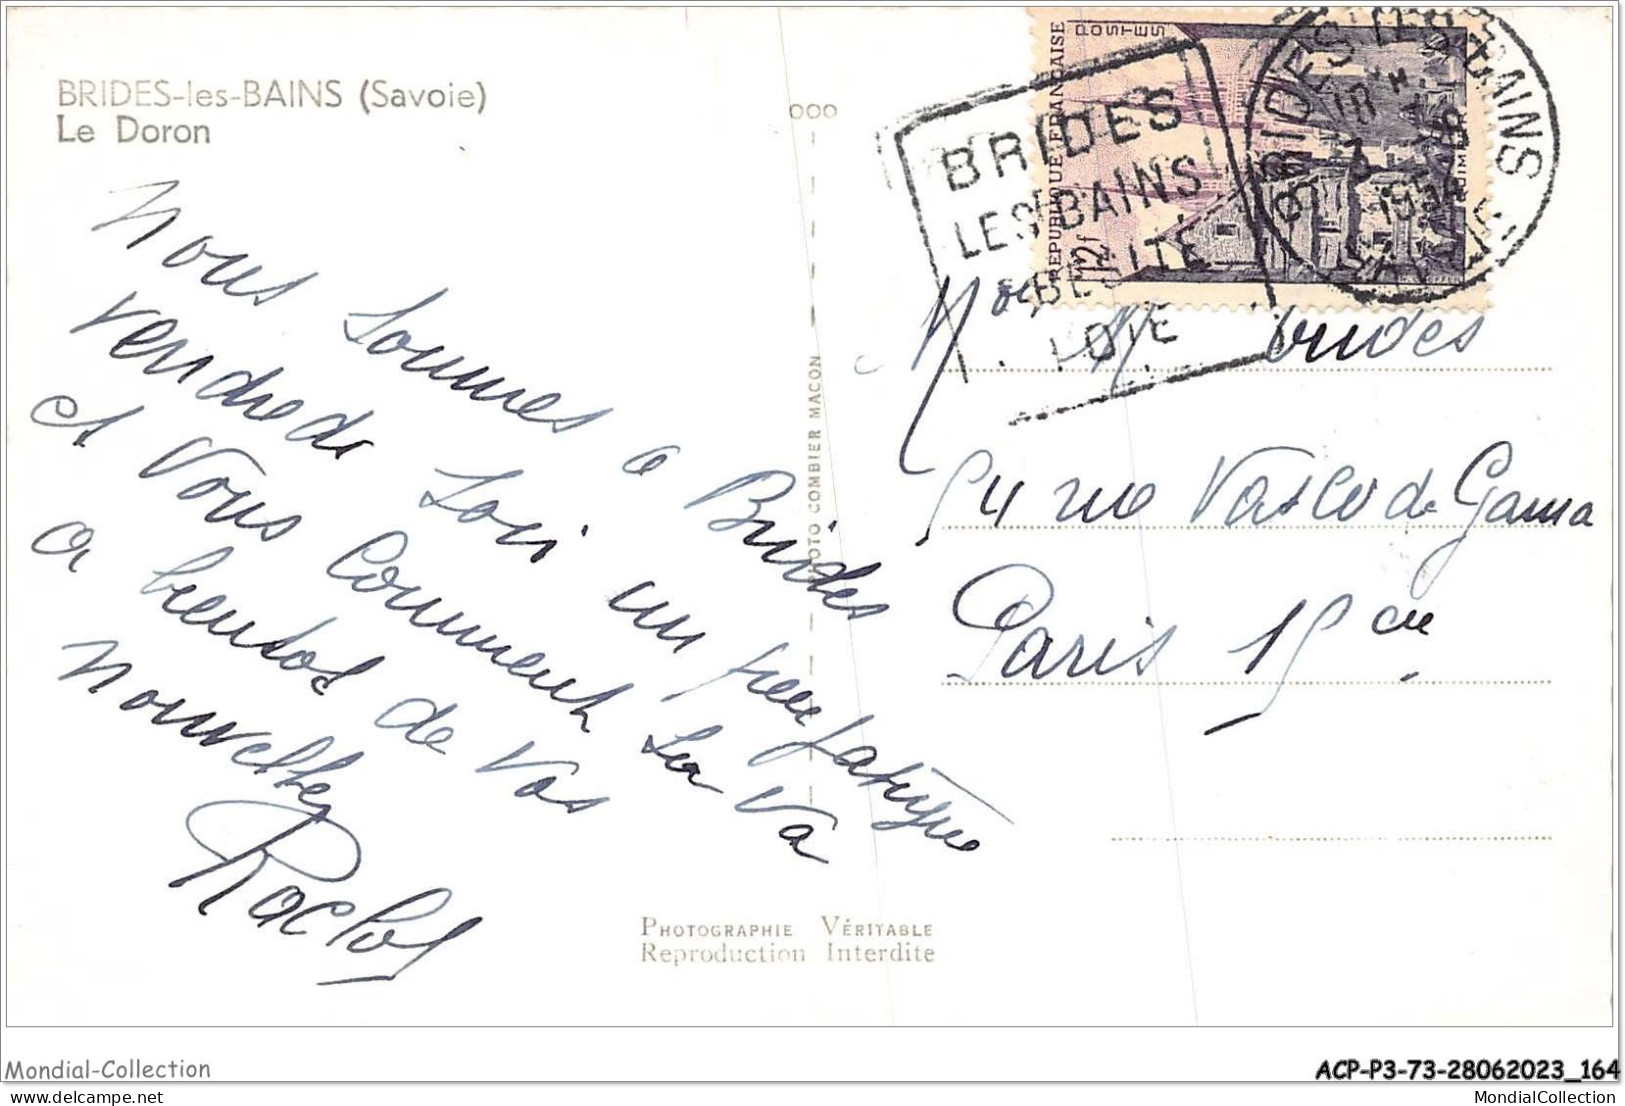 BRIDES-les-BAINS (Savoie)
Le Doron
Nous sommes à Brides
vendredi soir un peu fatigué
et vous comment sa va
a bientot de vos
nouvelles
PHOTO COMBIER MACON
PHOTOGRAPHIE VÉRITABLE
Reproduction Interdite
POSTES
REPUBLIQUE FRANÇAISE
12f
QUIMPER
BRIDES
LES BAINS
OBESITE
BRIDES LES BAINS
18 H
3
54 rue Vasco de Gama
Paris 15 em
Mondial-Collection
ACP-P3-73-28062023_164
MondialCollection